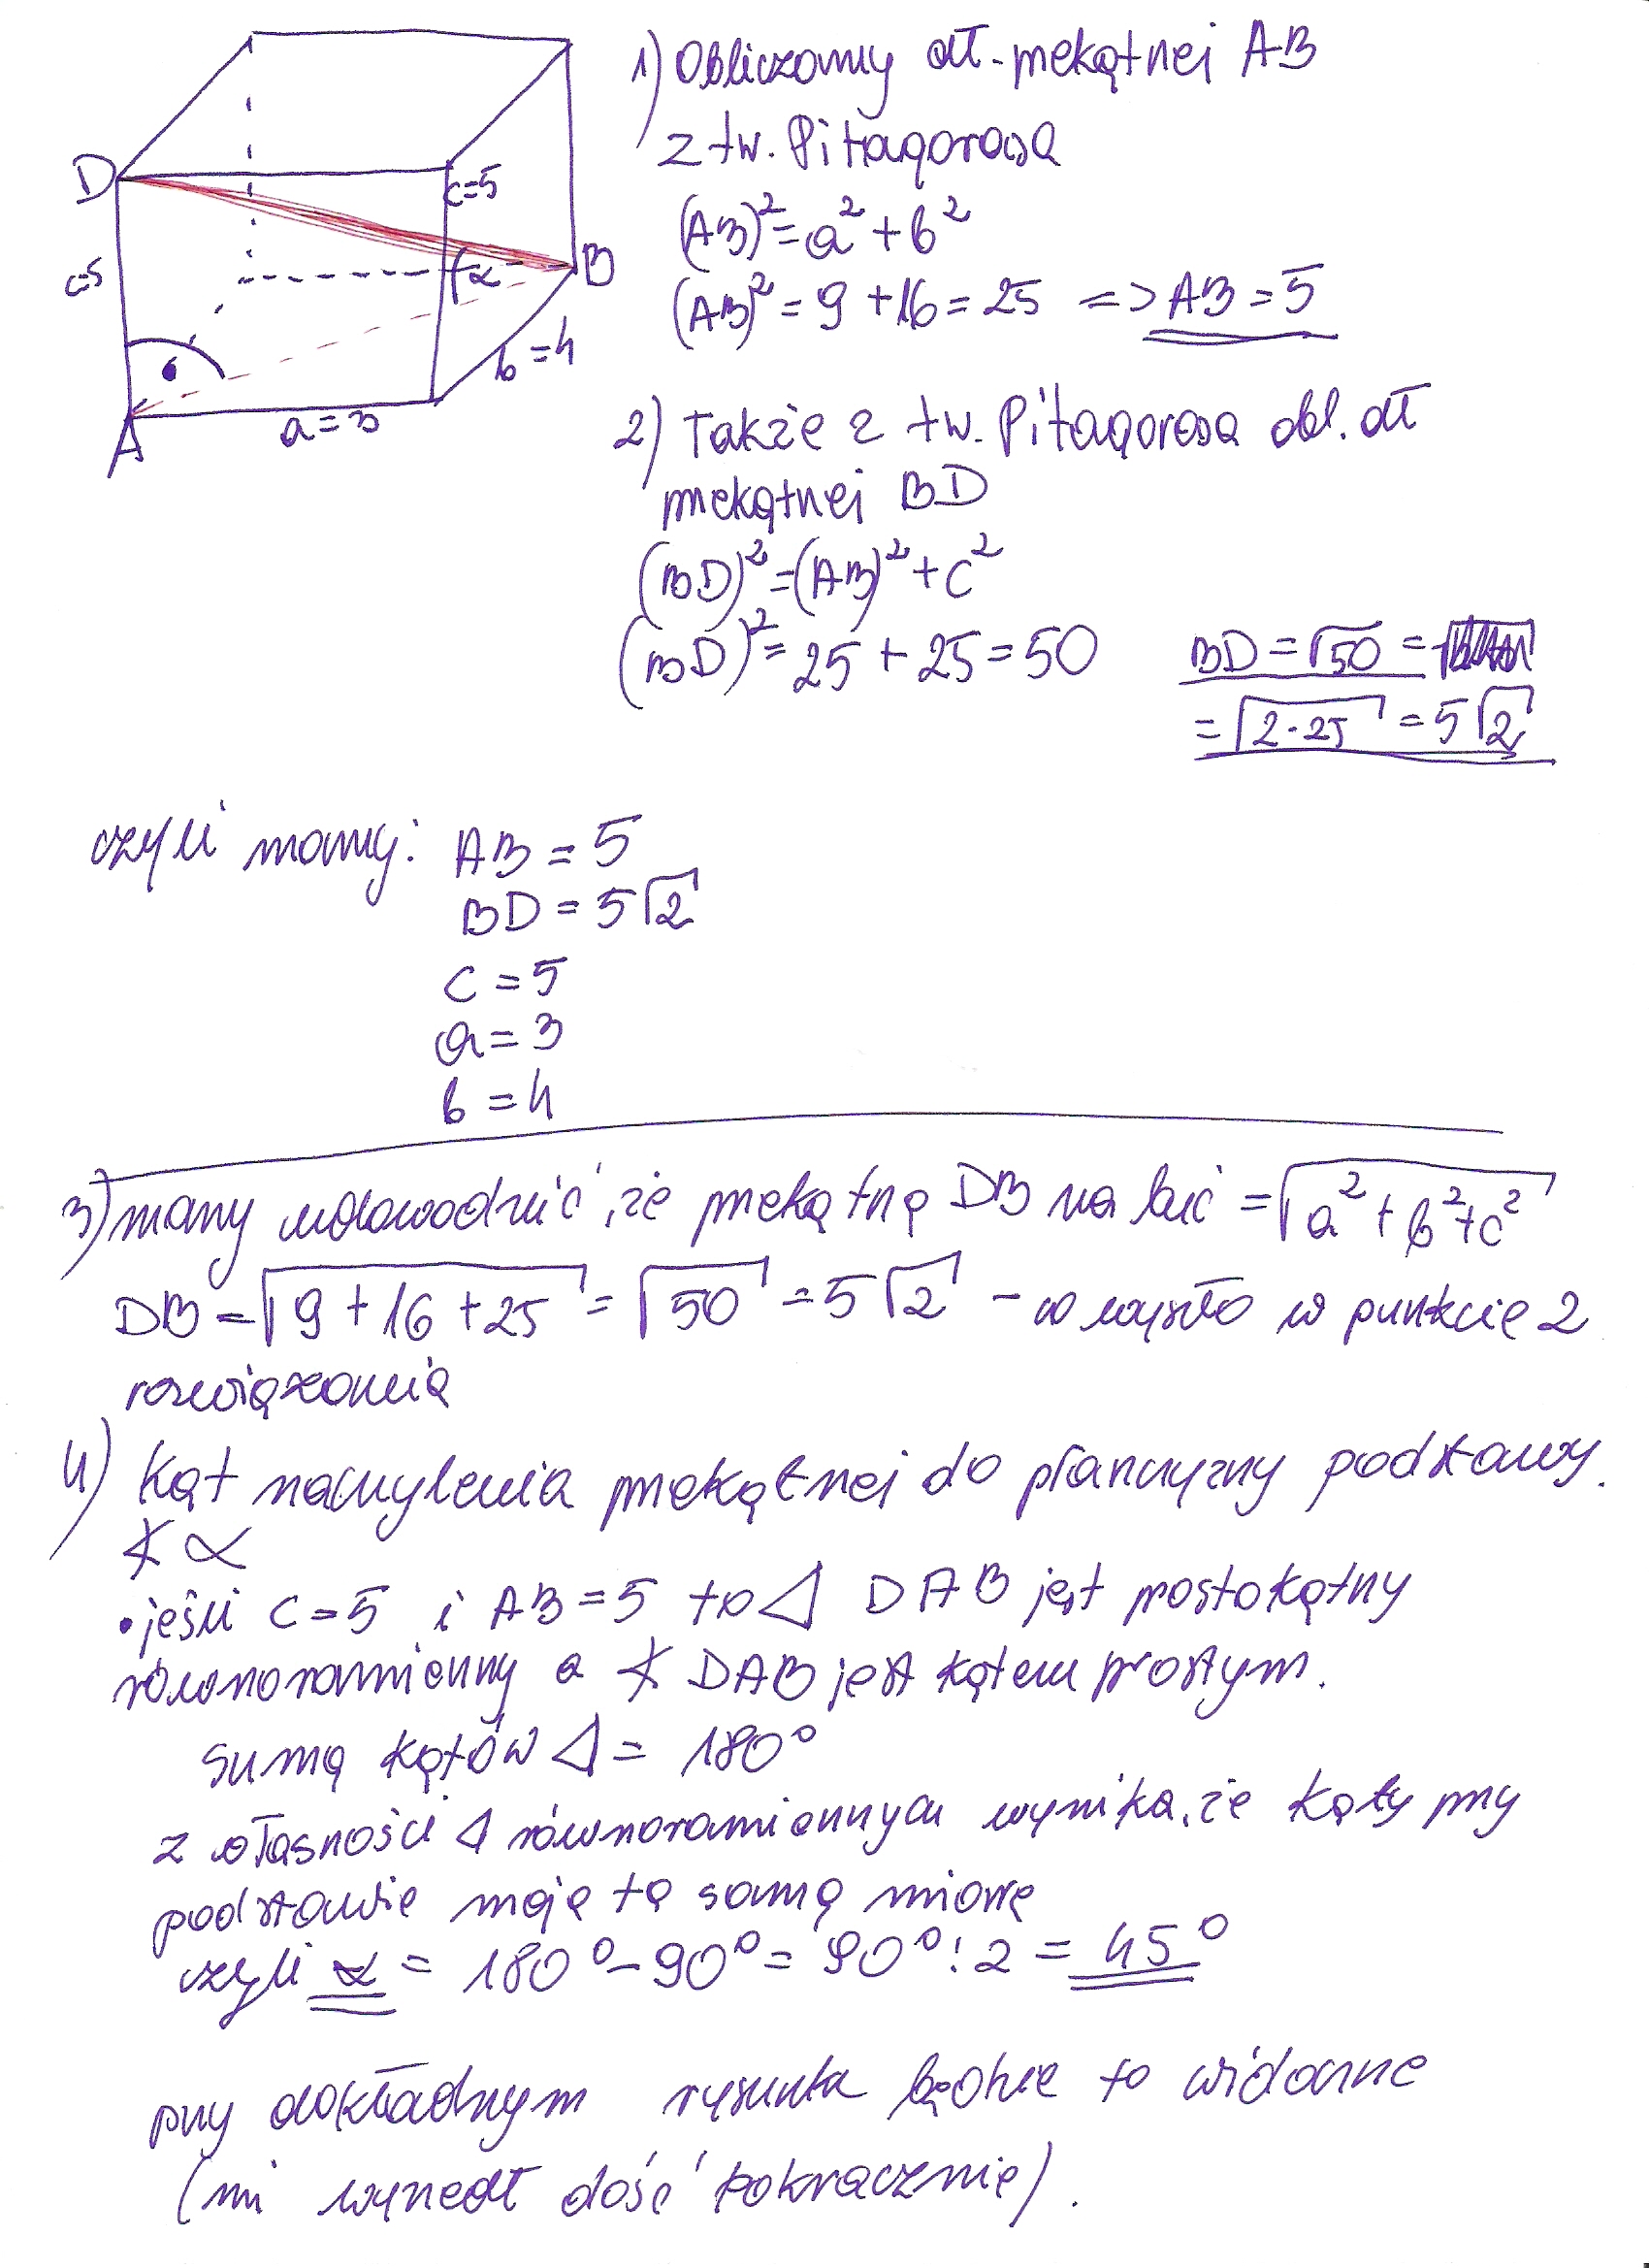 D
c=5
c=5
α
B
b=4
A
a=3
1) Obliczamy dł. przekątnej AB
z tw. Pitagorasa
(AB)² = a² + b²
(AB)² = 9 + 16 = 25 => AB = 5
2) Także z tw. Pitagorasa obl. dł
przekątnej BD
(BD)² = (AB)² + c²
(BD)² = 25 + 25 = 50 BD = √50 =
= √2·25 = 5√2
czyli mamy: AB = 5
BD = 5√2
c = 5
a = 3
b = 4
3) mamy udowodnić, że przekątna DB ma być = √a² + b² + c²
DB = √9 + 16 + 25 = √50 = 5√2 - co wyszło w punkcie 2
rozwiązania
4) Kąt nachylenia przekątnej do płaszczyzny podstawy.
∢ α
• jeśli c = 5 i AB = 5 to △ DAB jest prostokątny
równoramienny a ∢ DAB jest kątem prostym.
suma kątów △ = 180°
z własności △ równoramiennych wynika, że kąty przy
podstawie mają tą samą miarę
czyli α = 180° - 90° = 90° : 2 = 45°
przy dokładnym rysunku będzie to widoczne
(mi wyszedł dość pokracznie).